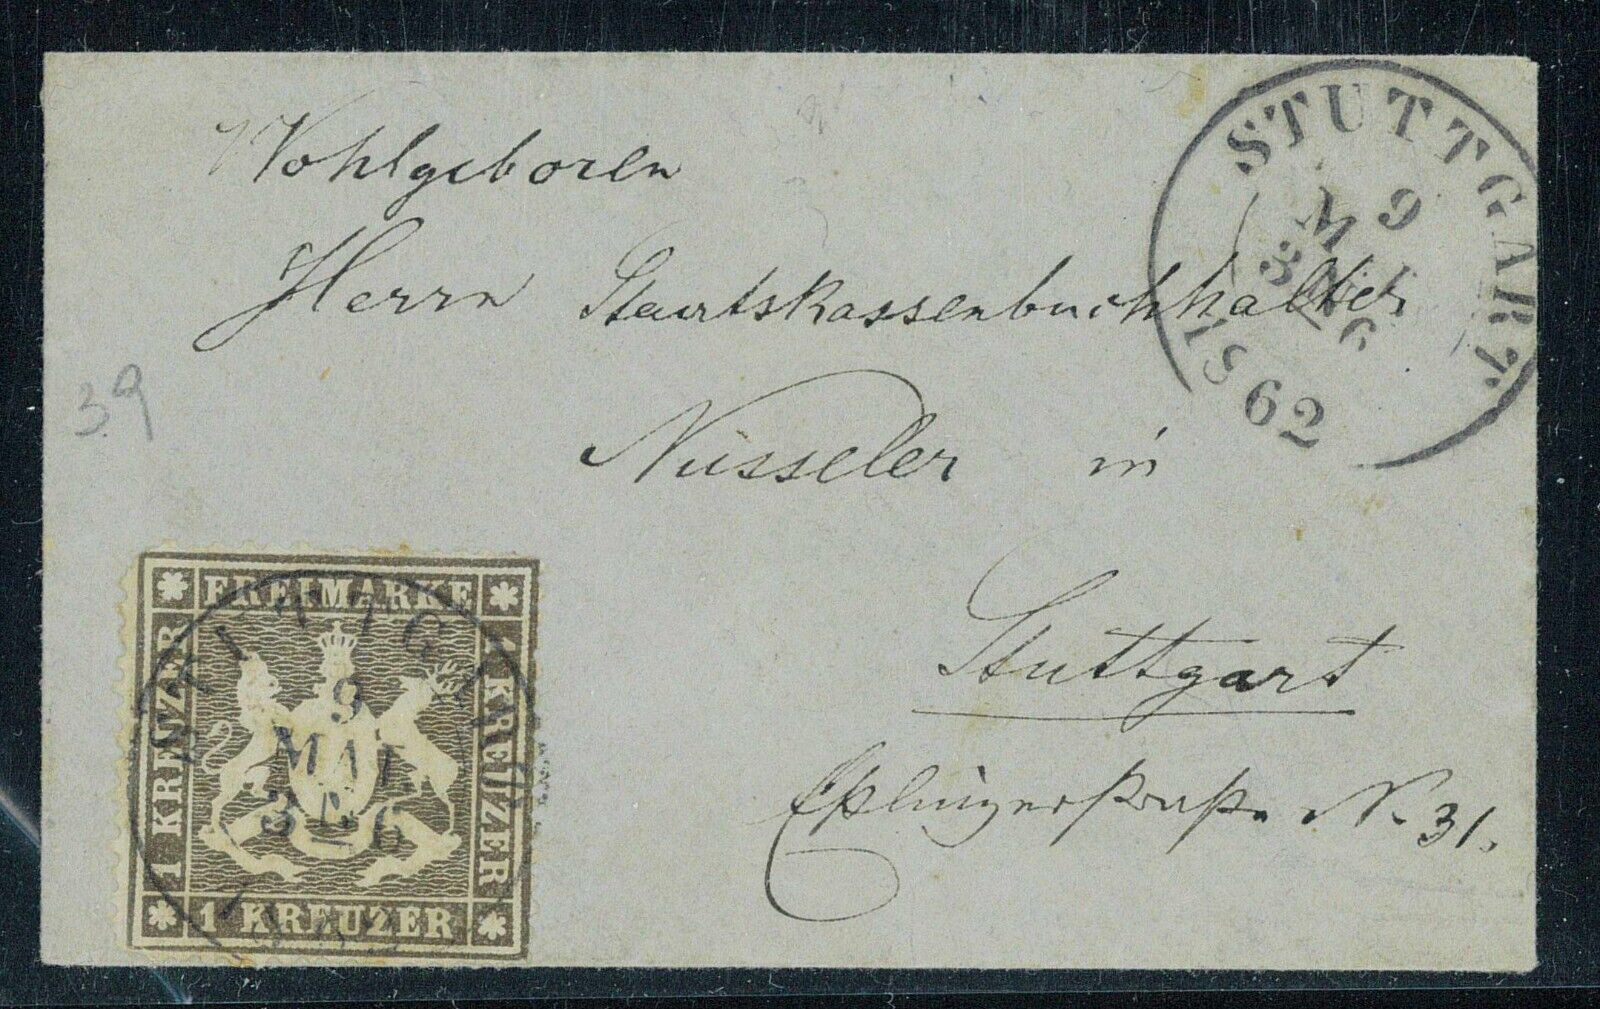 Wohlgeboren
Herrn Staatskassenbuchhalter
Nüsseler in
Stuttgart
Eßlingerstraße N. 31.
STUTTGART
9
MAI
3 N 6
1862
39
FREIMARKE
1 KREUZER
1 KREUZER
1 KREUZER
STUTTGART
9
MAI
3 N 6